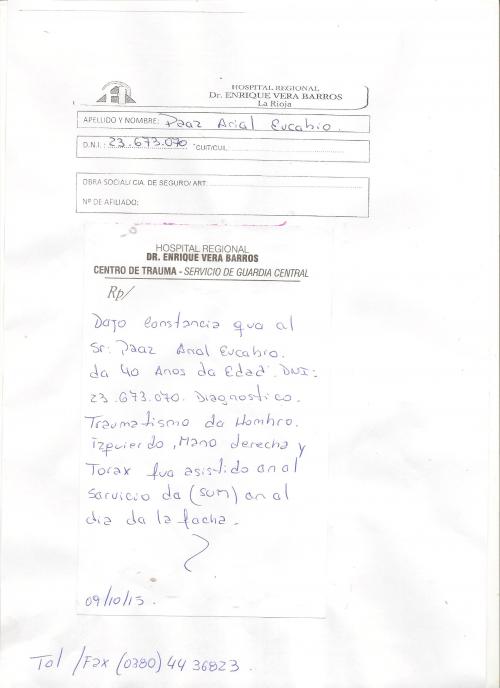 HOSPITAL REGIONAL
Dr. ENRIQUE VERA BARROS
La Rioja
APELLIDO Y NOMBRE: Paaz Arial Eucabio.
D.N.I.: 23.673.070 CUIT/CUIL
OBRA SOCIAL/ CIA. DE SEGURO/ ART
Nº DE AFILIADO:
HOSPITAL REGIONAL
DR. ENRIQUE VERA BARROS
CENTRO DE TRAUMA - SERVICIO DE GUARDIA CENTRAL
Rp/
Dajo Constancia qua al
Sr: Paaz Arial Eucabio.
da 40 Anos da Edad. DNI:
23.673.070. Diagnostico.
Traumatismo da Hombro.
izquierdo, Mano derecha y
Torax fua asistido an al
Sarvicio da (SUM) an al
dia da la facha.
09/10/15.
Tal /Fax (0380) 44 36823.